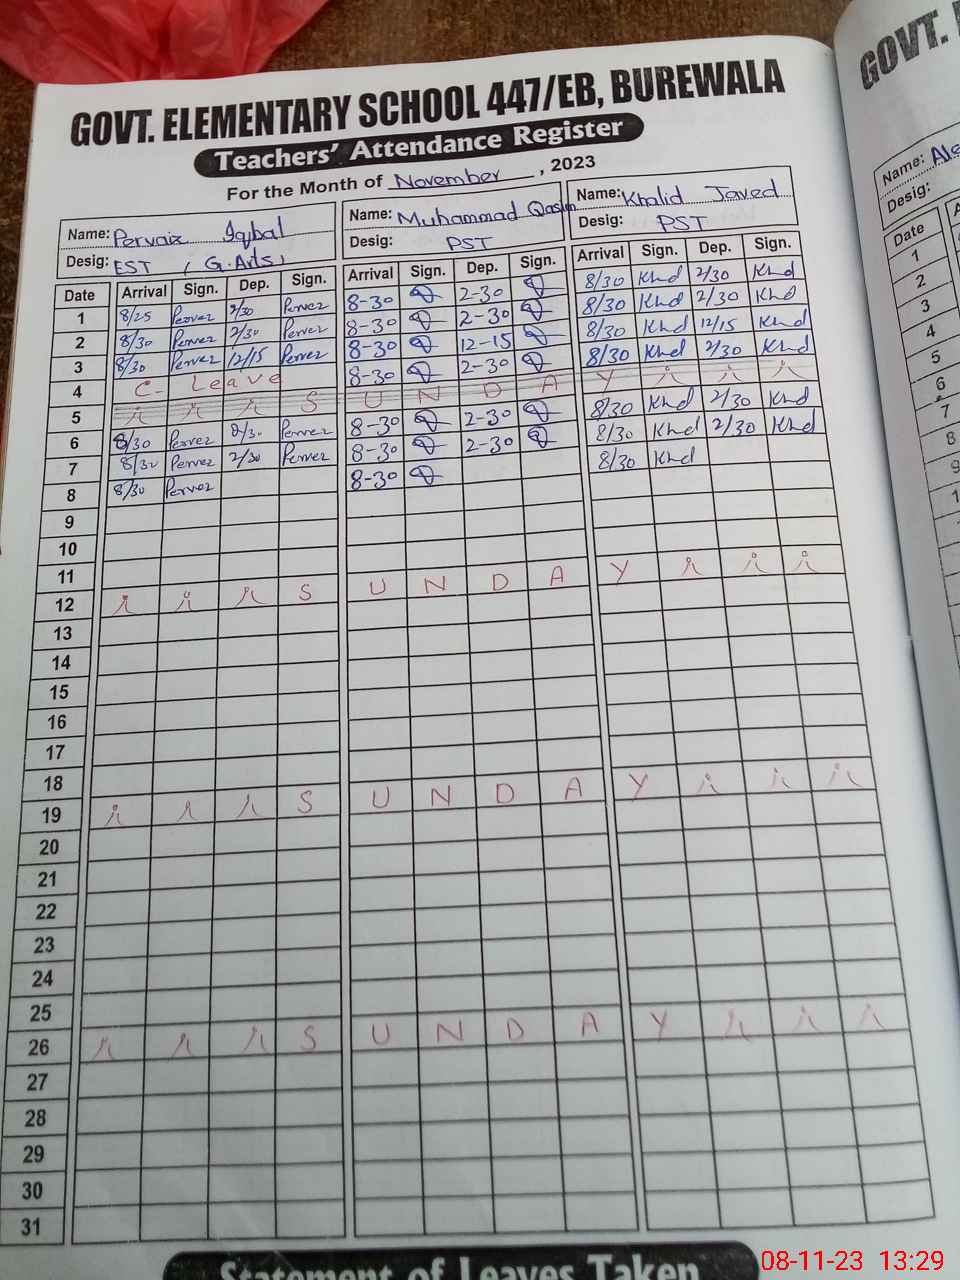 GOVT. ELEMENTARY SCHOOL 447/EB, BUREWALA
Teachers' Attendance Register
For the Month of November, 2023
Name: Pervaiz Iqbal
Desig: EST (G.Arts)
Name: Muhammad Qasim
Desig: PST
Name: Khalid Javed
Desig: PST
Date Arrival Sign. Dep. Sign. Arrival Sign. Dep. Sign. Arrival Sign. Dep. Sign.
1 8/25 Pervez 2/30 Pervez 8-30 2-30 8/30 Khd 2/30 Khd
2 8/30 Pervez 2/30 Pervez 8-30 2-30 8/30 Khd 2/30 Khd
3 8/30 Pervez 12/15 Pervez 8-30 12-15 8/30 Khd 12/15 Khd
4 C- Leave 8-30 2-30 8/30 Khd 2/30 Khd
5 S U N D A Y
6 8/30 Pervez 2/30 Pervez 8-30 2-30 8/30 Khd 2/30 Khd
7 8/30 Pervez 2/30 Pervez 8-30 2-30 8/30 Khd 2/30 Khd
8 8/30 Pervez 8-30 8/30 Khd
9
10
11
12 S U N D A Y
13
14
15
16
17
18
19 S U N D A Y
20
21
22
23
24
25
26 S U N D A Y
27
28
29
30
31
Statement of Leaves Taken
GOVT.
Name: Ale
Desig:
Date
1
2
3
4
5
6
7
8
9
08-11-23 13:29